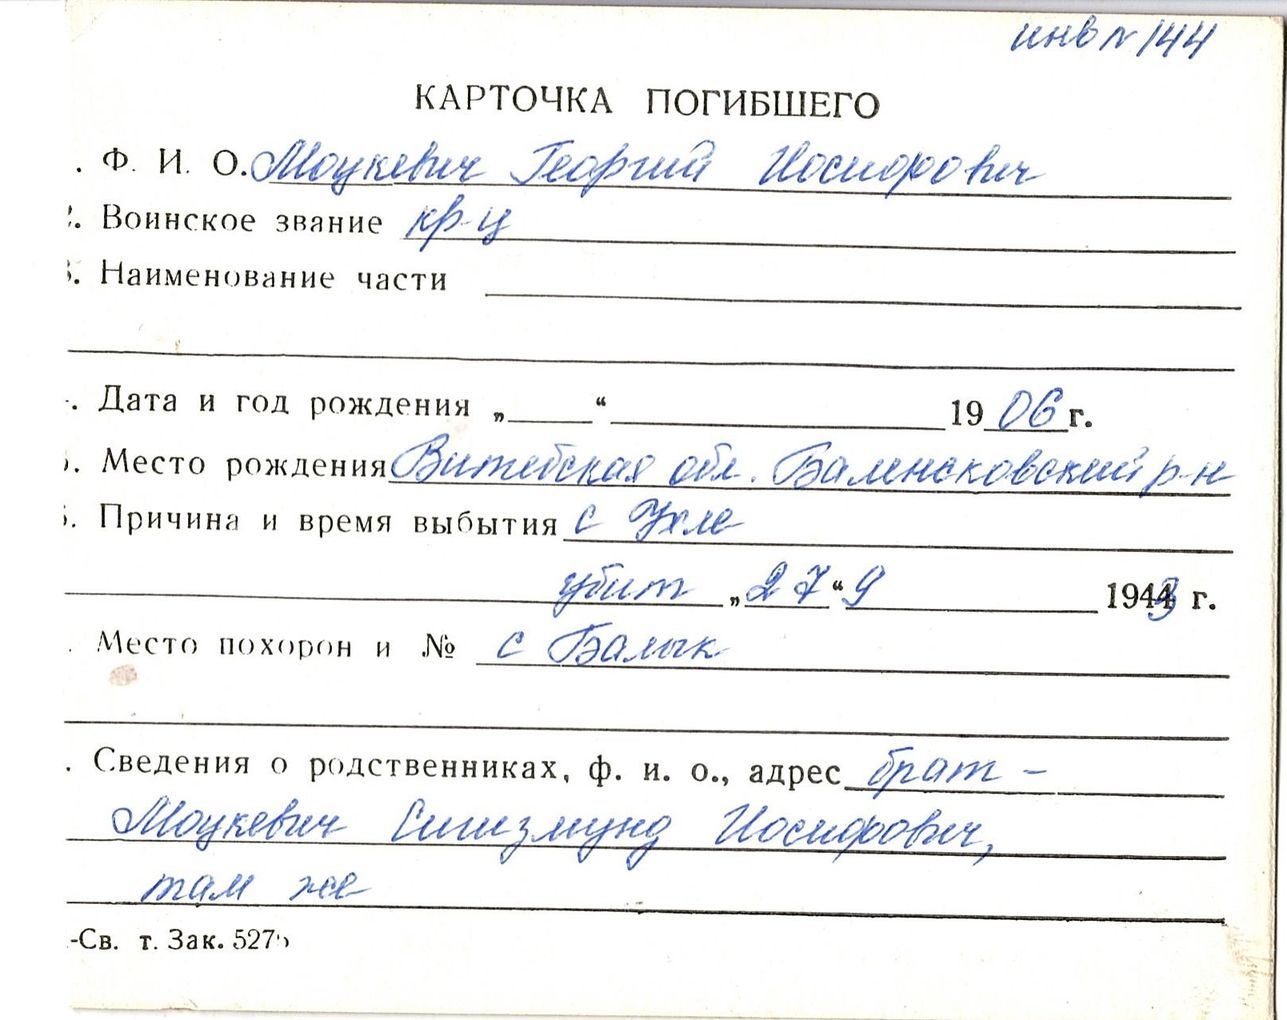 инв № 144
КАРТОЧКА ПОГИБШЕГО
. Ф. И. О. Моцкевич Георгий Иосифович
2. Воинское звание кр-ц
3. Наименование части
. Дата и год рождения „ “ 1906 г.
. Место рождения Витебская обл. Баленсковский р-н
. Причина и время выбытия с Ухле
убит „27“ 9 1943 г.
. Место похорон и № с Балык
. Сведения о родственниках, ф. и. о., адрес брат -
Моцкевич Сигизмунд Иосифович,
там же
-Св. т. Зак. 5275